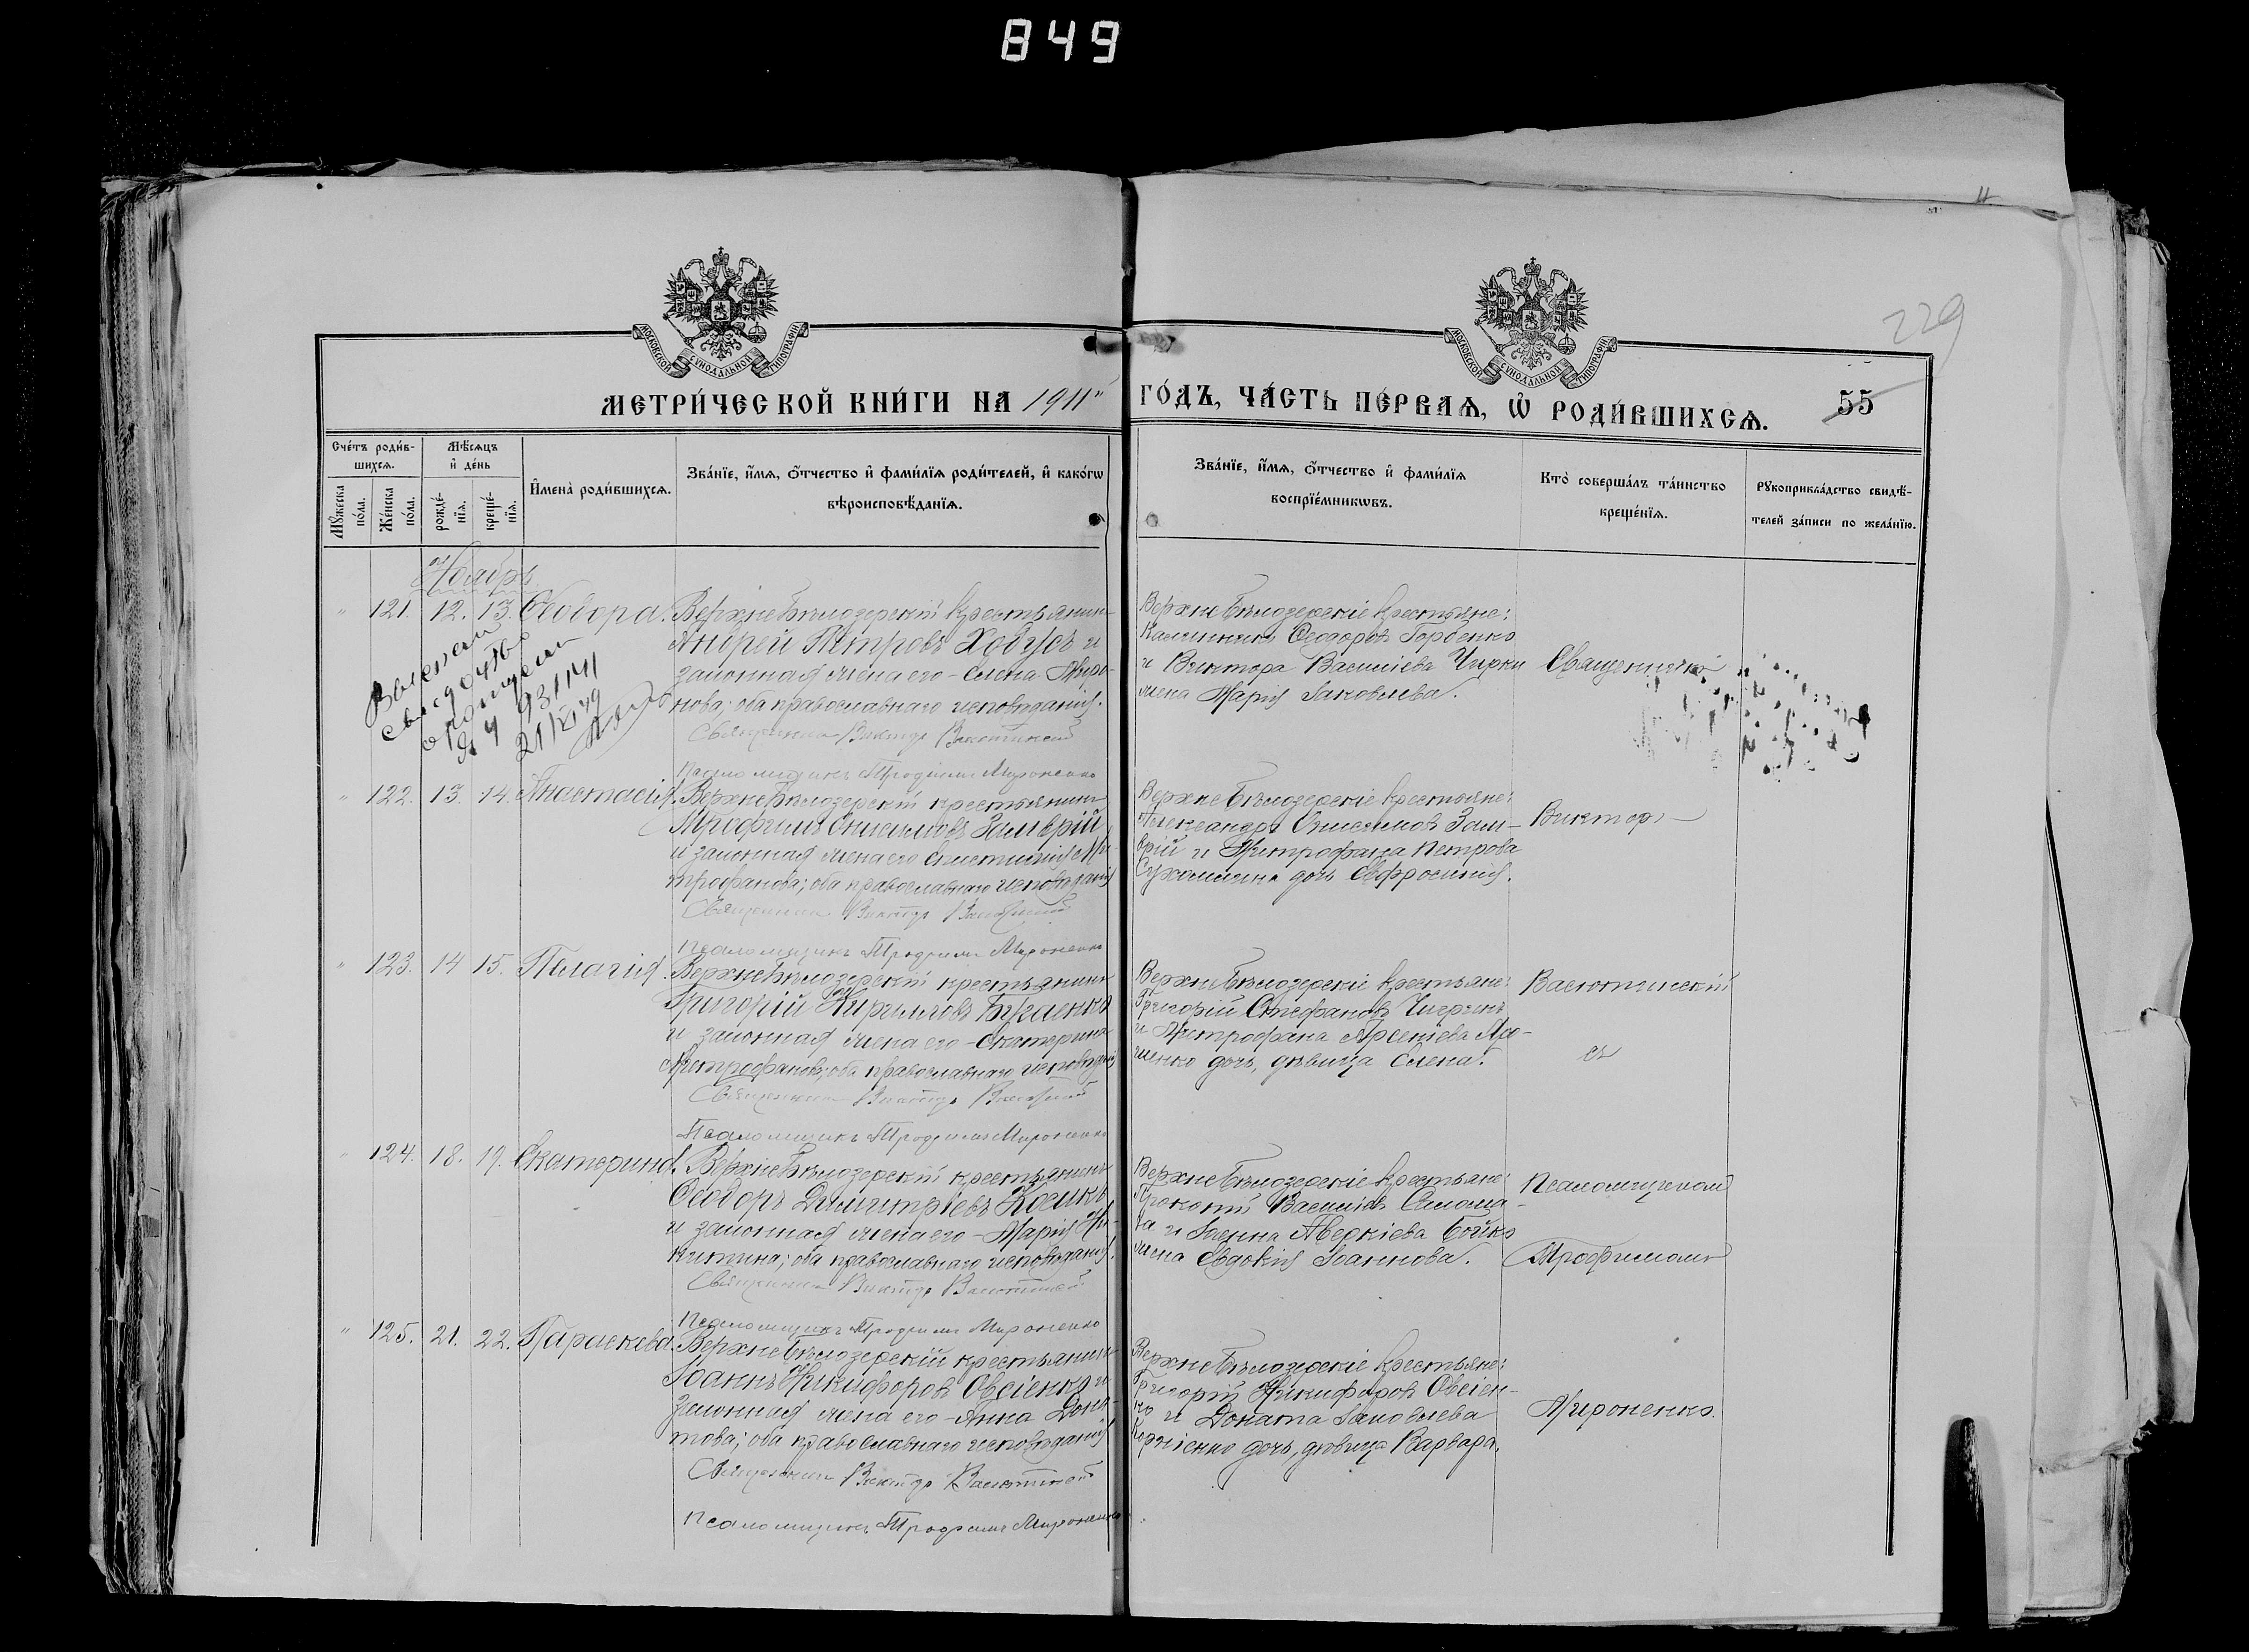 849
229
МОСКОВСКОЙ СѴНОДАЛЬНОЙ ТИПОГРАФІИ
МОСКОВСКОЙ СѴНОДАЛЬНОЙ ТИПОГРАФІИ
МЕТРИ́ЧЕСКОЙ КНИ́ГИ НА 1911
ГО́ДЪ, ЧА́СТЬ ПЕ́РВАѦ, Ѡ҆ РОДИ́ВШИХСѦ.
55
Сче́тъ роди́в-
шихсѧ.
Мꙋ́жеска по́ла.
Же́нска по́ла.
Мѣ́сѧцъ
и҆ де́нь
рожде́-
нїѧ.
креще́-
нїѧ.
И҆мена̀ роди́вшихсѧ.
Зва́нїе, и҆́мѧ, ѻ҆́тчество и҆ фами́лїѧ роди́телей, и҆ како́гѡ
вѣроисповѣ́данїѧ.
Зва́нїе, и҆́мѧ, ѻ҆́тчество и҆ фами́лїѧ
воспрїе́мникѡвъ.
Кто̀ соверша́лъ та́инство
креще́нїѧ.
Рꙋкоприкла́дство свидѣ́-
телей за́писи по жела́нїю.
Ноябрь
121. 12. 13. Ѳеодора.
Верхнебѣлозерскій крестьянинъ
Андрей Петровъ Ходусъ и
законная жена его - Елена Миро-
нова; оба православнаго исповѣданія.
Священникъ Викторъ Васютинскій
Псаломщикъ Трофимъ Мироненко
Верхнебѣлозерскіе крестьяне:
Каллиникъ Ѳеодоровъ Горбенко
и Виктора Васильева Чирки
жена Марія Іаковлева.
Священникъ
21/XI 49
122. 13. 14. Анастасія.
Верхнебѣлозерскій крестьянинъ
Трофимъ Онисимовъ Замврій
и законная жена его Ми-
трофанова; оба православнаго исповѣданія
Священникъ Викторъ Васютинскій
Псаломщикъ Трофимъ Мироненко
Верхнебѣлозерскіе крестьяне:
Александръ Онисимовъ Зам-
врій и Митрофана Петрова
дочь Евфросинія.
Викторъ
123. 14 15. Пелагія.
Верхнебѣлозерскій крестьянинъ
Григорій Кирилловъ Бугаенко
и законная жена его - Екатерина
Митрофанова; оба православнаго исповѣданія
Священникъ Викторъ Васютинскій
Псаломщикъ Трофимъ Мироненко
Верхнебѣлозерскіе крестьяне:
Григорій Стефановъ Чигринъ
и Митрофана Арсеніева
дочь, дѣвица Елена.
Васютинскій
съ
124. 18. 19. Екатерина.
Верхнебѣлозерскій крестьянинъ
Ѳеодоръ Димитріевъ Косикъ
и законная жена его - Марія Ни-
китина; оба православнаго исповѣданія.
Священникъ Викторъ Васютинскій
Псаломщикъ Трофимъ Мироненко
Верхнебѣлозерскіе крестьяне:
Прокопій Васильевъ
и Іоанна Аверкіева Бойко
жена Евдокія Іоаннова.
Псаломщикомъ
Трофимомъ
125. 21. 22. Параскева.
Верхнебѣлозерскій крестьянинъ
Іоаннъ Никифоровъ Овсіенко и
законная жена его - Анна Дона-
това; оба православнаго исповѣданія
Священникъ Викторъ Васютинскій
Псаломщикъ Трофимъ Мироненко
Верхнебѣлозерскіе крестьяне:
Григорій Никифоровъ Овсіен-
ко и Доната Іаковлева
Корніенко дочь, дѣвица Варвара.
Мироненко.